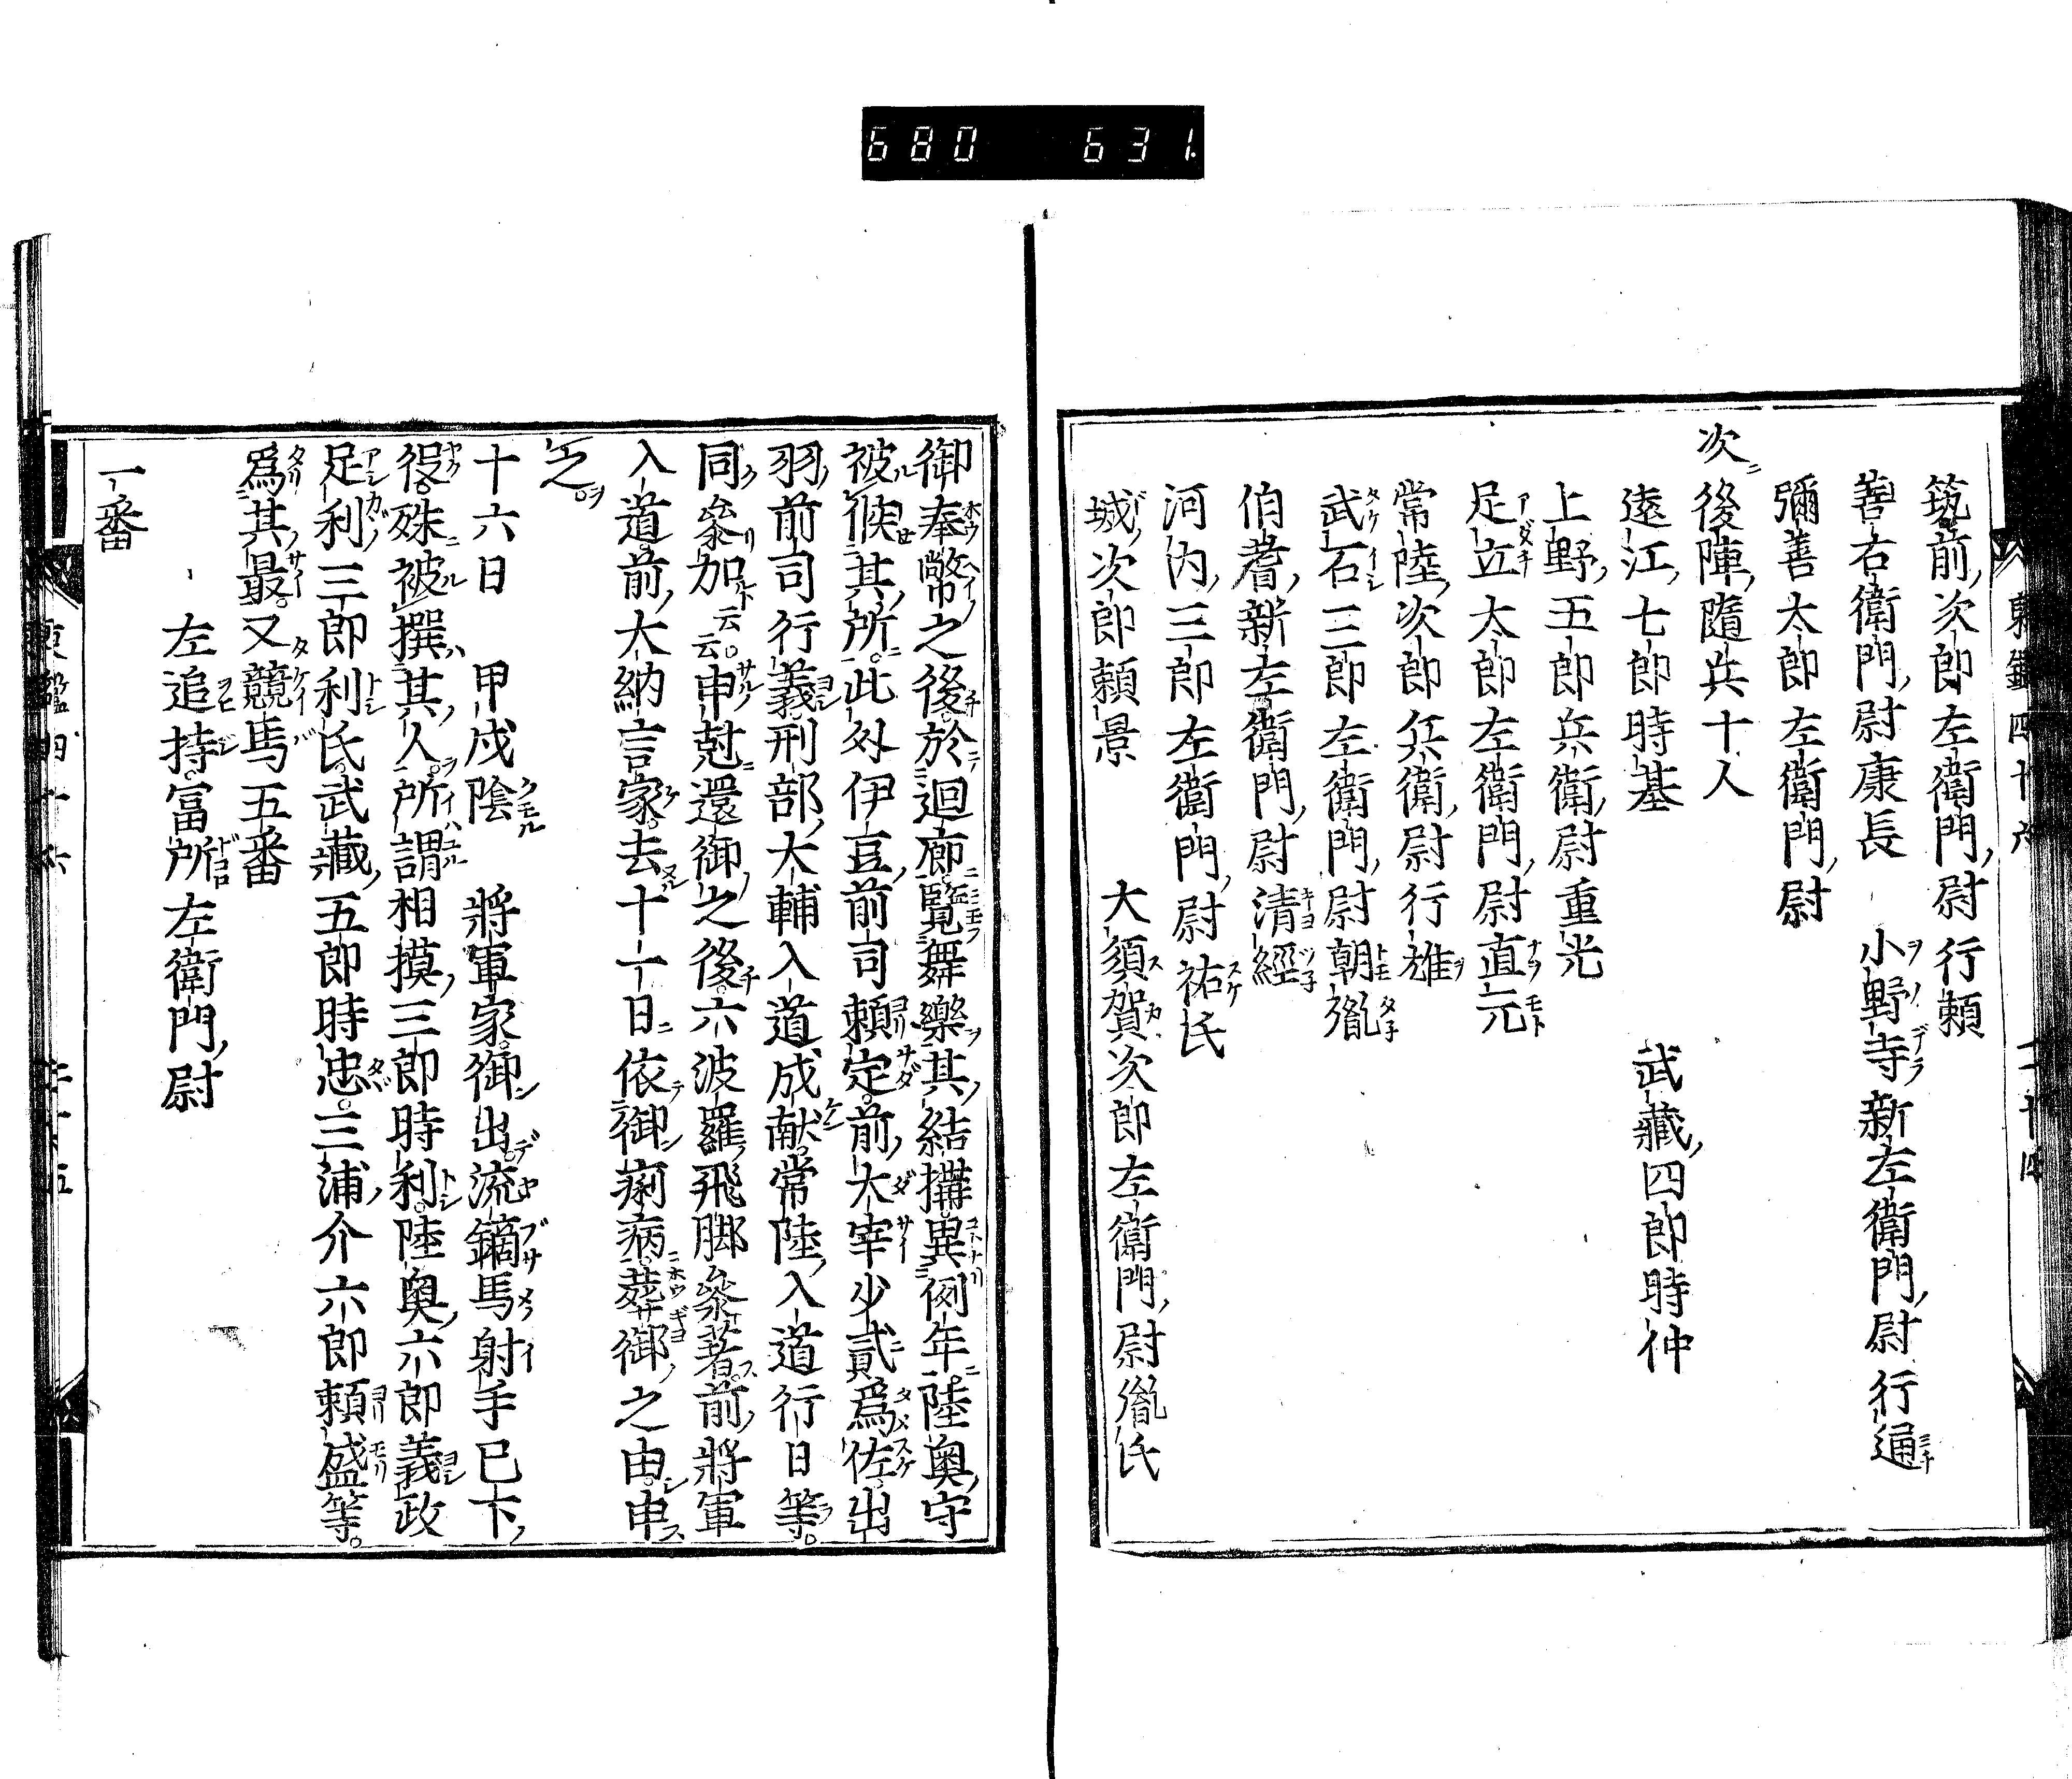 680 631.
筑前次郎左衛門尉行頼
善右衛門尉康長 小野寺新左衛門尉行通
彌善太郎左衛門尉
次後陣隨兵十人
遠江七郎時基 武藏四郎時仲
上野五郎兵衛尉重光
足立太郎左衛門尉直元
常陸次郎兵衛尉行雄
武石三郎左衛門尉朝胤
伯耆新左衛門尉清經
河内三郎左衛門尉祐氏
城次郎頼景 大須賀次郎左衛門尉胤氏
御奉幣之後於迴廊覽舞樂其結搆異例年陸奥守
被候其所此外伊豆前司頼定前太宰少貳爲佐出
羽前司行義刑部大輔入道成献常陸入道行日等
同參加云云申尅還御之後六波羅飛脚參著前將軍
入道前大納言家去十一日依御痢病薨御之由申
之
十六日 甲戌陰 將軍家御出流鏑馬射手已下
役殊被撰其人所謂相摸三郎時利陸奥六郎義政
足利三郎利氏武藏五郎時忠三浦介六郎頼盛等
爲其最又競馬五番
一番
左追持冨所左衛門尉